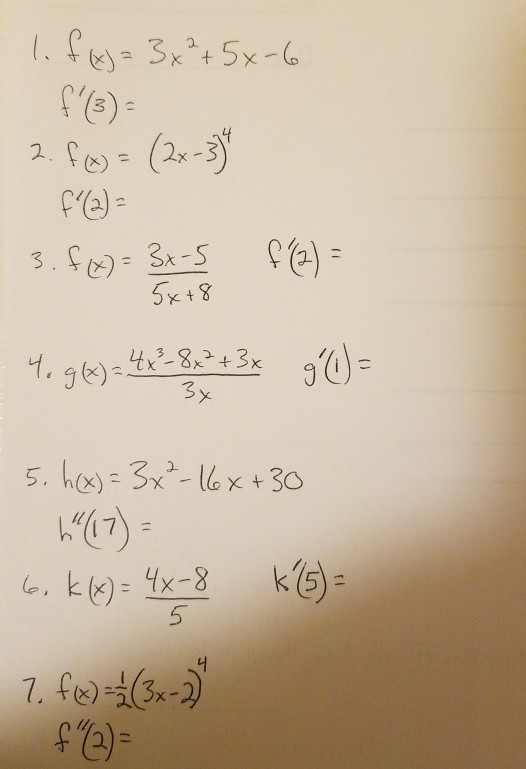 1. f(x) = 3x² + 5x - 6
f'(3) =
2. f(x) = (2x-3)⁴
f'(2) =
3. f(x) = 3x-5 f'(2) =
5x+8
4. g(x) = 4x³-8x²+3x g'(1) =
3x
5. h(x) = 3x² - 16x + 30
h"(17) =
6. k(x) = 4x-8 k'(5) =
5
7. f(x) = ½(3x-2)⁴
f"(2) =